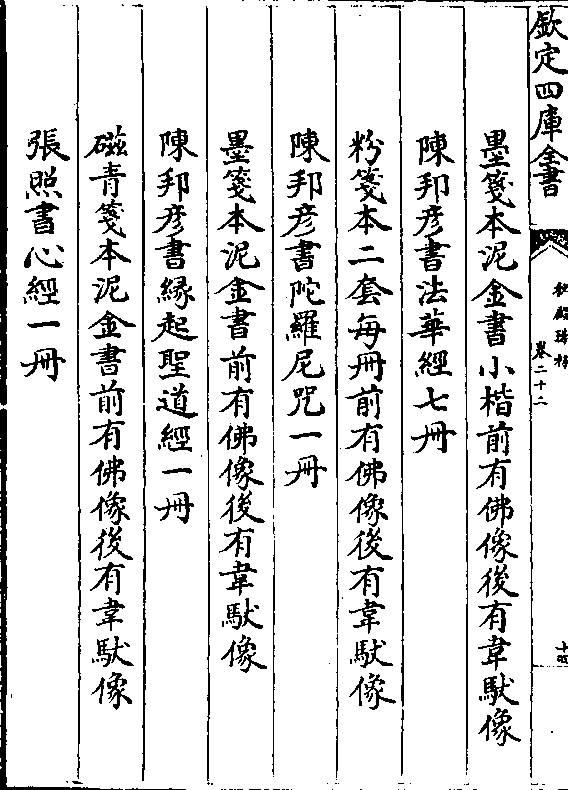 欽定四庫全書
秘殿珠林
卷二十二
十四
墨箋本泥金書小楷前有佛像後有韋馱像
陳邦彦書法華經七冊
粉箋本二套每冊前有佛像後有韋馱像
陳邦彦書陀羅尼咒一冊
墨箋本泥金書前有佛像後有韋馱像
陳邦彦書縁起聖道經一冊
磁青箋本泥金書前有佛像後有韋馱像
張照書心經一冊